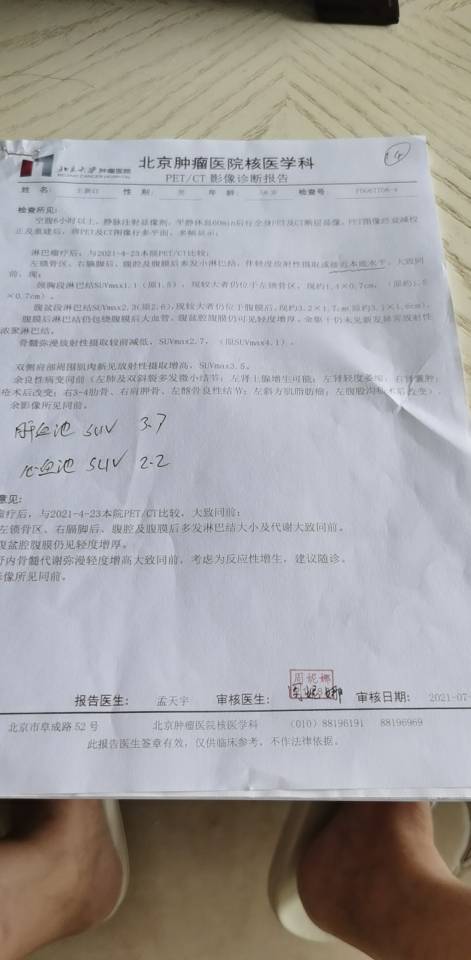 (4)
北京大学 肿瘤医院 北京肿瘤医院核医学科
BEIJING CANCER HOSPITAL PET/CT 影像诊断报告
姓 名: 性 别: 男 年 龄: 检查号
检查所见:
空腹6小时以上,静脉注射显像剂,平静休息60min后行全身PET及CT断层显像,PET图像经衰减校
正及重建后,将PET及CT图像行多平面、多幅显示:
淋巴瘤疗后,与2021-4-23本院PET/CT比较:
左锁骨区、右膈脚后、腹腔及腹膜后多发小淋巴结,伴轻度放射性摄取或接近本底水平,大致同
前,现:
颈胸段淋巴结SUVmax1.1(原1.5),现较大者仍位于左锁骨区,现约1.4×0.7cm,(原约1.5
×0.7cm)。
腹盆段淋巴结SUVmax2.3(原2.6),现较大者仍位于腹膜后,现约3.2×1.7cm
腹膜后淋巴结仍包绕腹膜后大血管。腹盆腔腹膜仍可见轻度增厚。余躯干仍未见新发异常放射性
浓聚淋巴结。
骨髓弥漫放射性摄取较前减低,SUVmax2.7,(原SUVmax4.1)。
双侧肩部周围肌肉新见放射性摄取增高,SUVmax3.5。
余良性病变同前(左肺及双斜裂多发微小结节;左肾上腺增生可能;左肾轻度萎缩,右肾囊肿;
疮术后改变;右3-4肋骨、右肩胛骨、左髂骨良性结节;左斜方肌脂肪瘤;左腹股沟疝术后改变)。
余影像所见同前。
肝血池 SUV 3.7
心血池 SUV 2.2
意见:
瘤疗后,与2021-4-23本院PET/CT比较,大致同前:
左锁骨区、右膈脚后、腹腔及腹膜后多发淋巴结大小及代谢大致同前。
腹盆腔腹膜仍见轻度增厚。
野内骨髓代谢弥漫轻度增高大致同前,考虑为反应性增生,建议随诊。
影像所见同前。
周妮娜
报告医生: 孟天宇 审核医生: 周妮娜 审核日期: 2021-07-
北京市阜成路 52 号 北京肿瘤医院核医学科 (010) 88196191 88196969
此报告医生签章有效,仅供临床参考,不作法律依据。